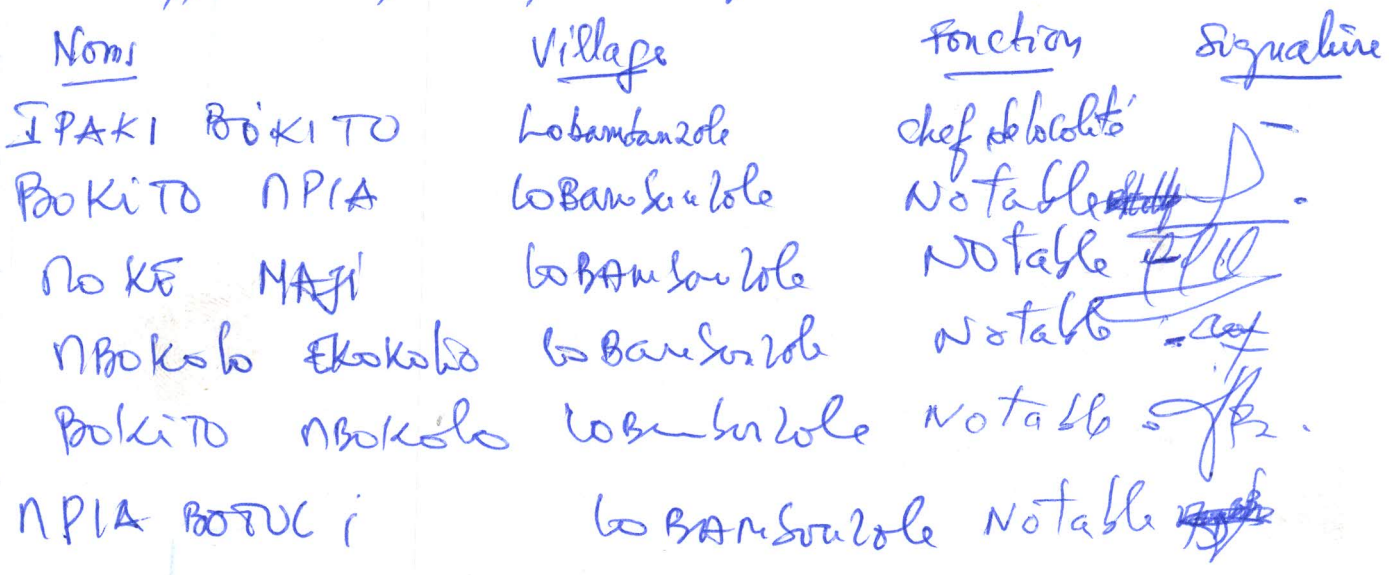 Noms Village Fonction Signature
IPAKI BOKITO Lobambanzole chef de localité
BOKITO MPIA LOBambanzole Notable
MOKE MAJI LOBAMbonzole NOtable
MBOKOLO EKOKOLO LOBambonzole Notable
BOKITO MBOKOLO LOBambonzole Notable
MPIA BOTULI LOBAMbonzole Notable